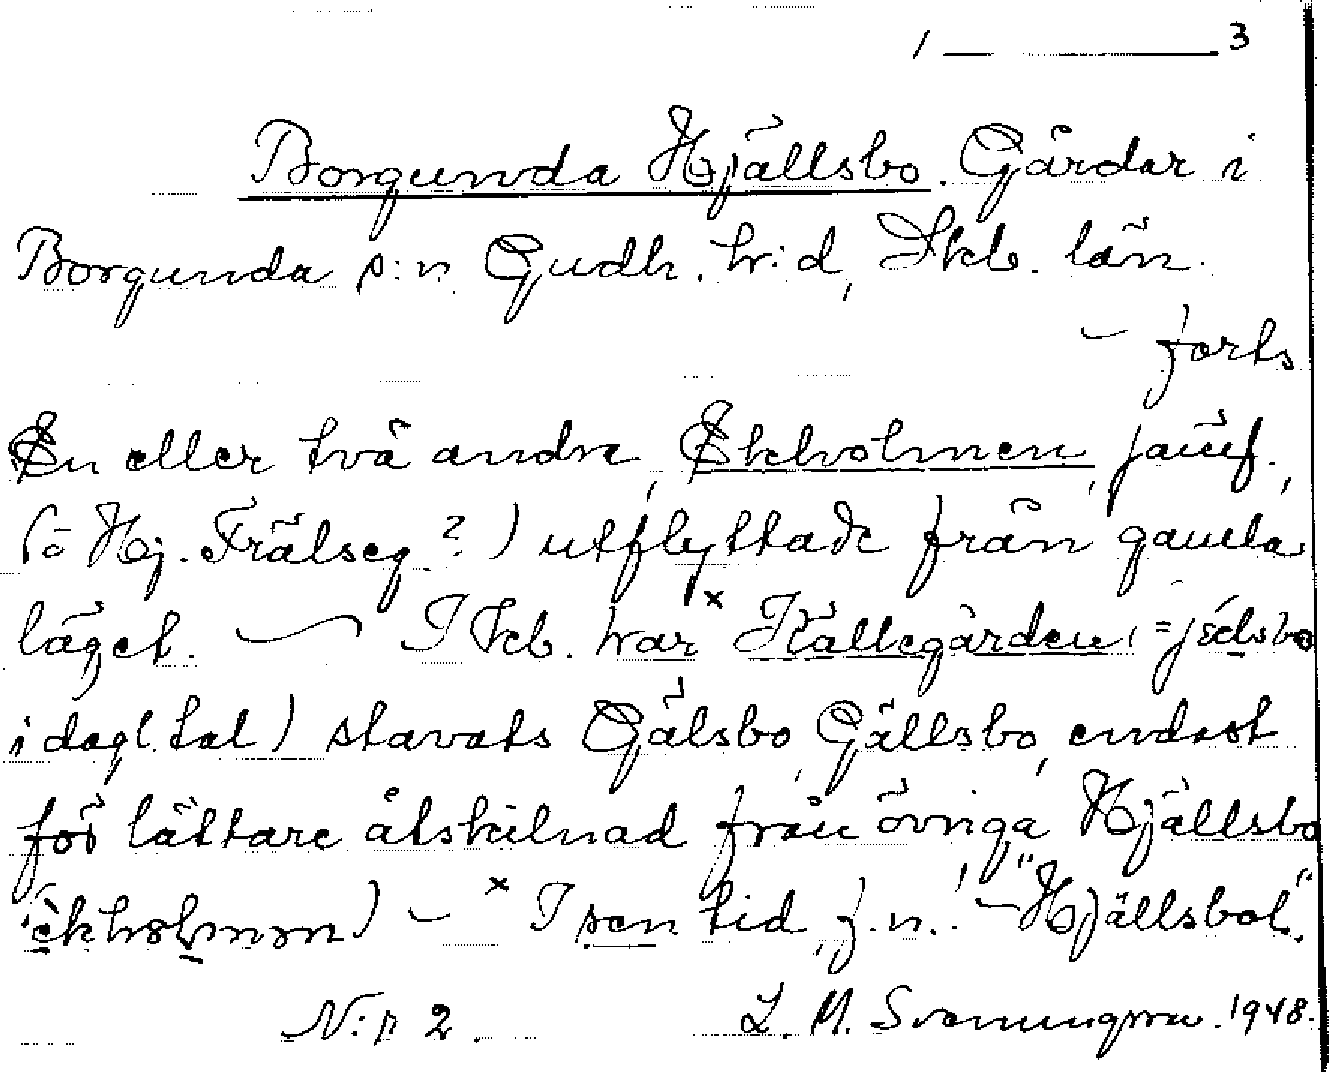 1 ——— 3
Borgunda Hjällsbo. Gårdar i
Borgunda s:n Gudh. h:d, Skb. län.
– forts
En eller två andre, Ekholmen, jämf.,
(ö Hj. Frälseg.?) utflyttade från gamla
läget. — I kb. har × Källegården, =
i dagl. tal) stavats Gälsbo, Gällsbo, endast
för lättare åtskilnad från övriga Hjällsbo
) – × I sen tid, f.n.: – "Hjällsbol".
N:r 2. L. M. Svenungsson. 1948.